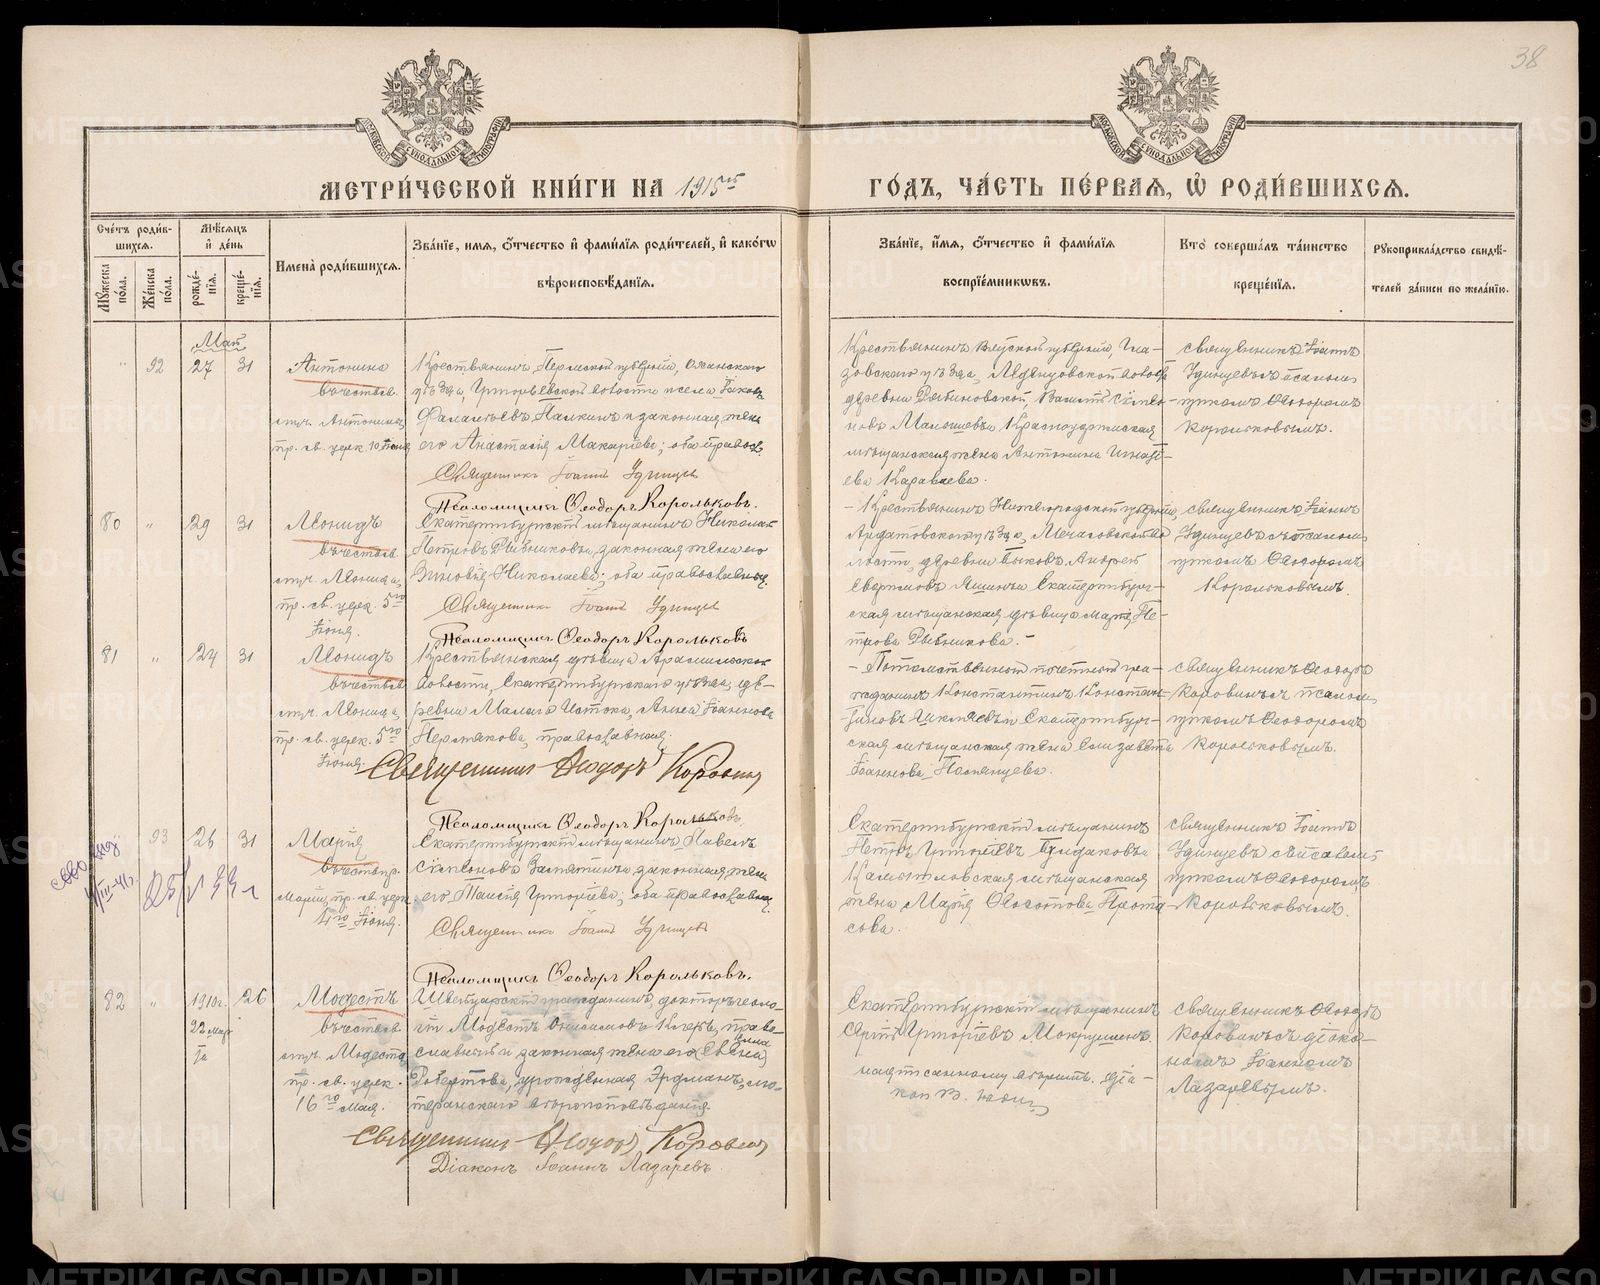 38
МОСКОВСКОЙ СѴНОДАЛЬНОЙ ТИПОГРАФІИ
МОСКОВСКОЙ СѴНОДАЛЬНОЙ ТИПОГРАФІИ
МЕТРИ́ЧЕСКОЙ КНИ́ГИ НА 1915
ГО́ДЪ, ЧА́СТЬ ПЕ́РВАѦ, Ѡ РОДИ́ВШИХСѦ.
Сче́тъ роди́в-
шихсѧ.
Мꙋжеска по́ла.
Же́нска по́ла.
Мѣ́сѧцъ
и҆ де́нь
рожде́-
нїѧ.
креще́-
нїѧ.
Имена̀ роди́вшихсѧ.
Зва́нїе, и́мѧ, ѻ҆́тчество и҆ фами́лїѧ роди́телей, и҆ како́гѡ
вѣроисповѣ́данїѧ.
Зва́нїе, и́мѧ, ѻ҆́тчество и҆ фами́лїѧ
воспрїе́мникѡвъ.
Кто̀ соверша́лъ та́инство
креще́нїѧ.
Рꙋкоприкла́дство свидѣ́-
телей за́писи по жела́нїю.
Май
" 92 27 31
Антонина
въ честь св.
муч. Антонины,
пр. св. церк. 10 Іюня
Крестьянинъ Пермской губерніи, Оханскаго
уѣзда, Григорьевской волости и села Іаковъ
Налкинъ и законная жена
его Анастасія Макаріева; оба правосл.
Священникъ Іоаннъ Удинцевъ
Псаломщикъ Ѳеодоръ Корольковъ.
Крестьянинъ Вятской губерніи, Гла-
зовскаго уѣзда,
деревни Рябиновской, Василій
Малышевъ и Красноуфимская
мѣщанская жена Антонина Игнаті-
ева Караваева.
священникъ Іоаннъ
Удинцевъ съ псалом-
щикомъ Ѳеодоромъ
Корольковымъ.
80 " 29 31
Леонидъ
въ честь св.
муч. Леонида,
пр. св. церк. 5го
Іюня.
Екатеринбургскій мѣщанинъ Николай
Петровъ Рывниковъ и законная жена его
Зиновія Николаева; оба православные.
Священникъ Іоаннъ Удинцевъ
Псаломщикъ Ѳеодоръ Корольковъ
Крестьянинъ Нижегородской губерніи,
Ардатовскаго уѣзда,
лости, деревни Быковъ, Андрей
и Екатеринбург-
ская мѣщанская дѣвица Марія Пе-
трова Рывникова.
священникъ Іоаннъ
Удинцевъ съ псалом-
щикомъ Ѳеодоромъ
Корольковымъ.
81 " 24 31
Леонидъ
въ честь св.
муч. Леонида,
пр. св. церк. 5го
Іюня.
Крестьянская дѣвица Арамильской
волости, Екатеринбургскаго уѣзда, де-
ревни Малаго Истока, Анна Іоаннова
Пермякова, православная.
Священникъ Ѳеодоръ Коровинъ
Псаломщикъ Ѳеодоръ Корольковъ
Потомственный почетный гра-
жданинъ Константинъ Констан-
тиновъ Шкляевъ и Екатеринбург-
ская мѣщанская жена Елизавета
Іоаннова
священникъ Ѳеодоръ
Коровинъ съ псалом-
щикомъ Ѳеодоромъ
Корольковымъ.
93 26 31
Марія
въ честь пр.
Маріи, пр. св. церк.
4го Іюня.
Екатеринбургскій мѣщанинъ Павелъ
Симеоновъ Замятинъ и законная жена
его Таисія Григоріева; оба православны.
Священникъ Іоаннъ Удинцевъ
Псаломщикъ Ѳеодоръ Корольковъ.
Екатеринбургскій мѣщанинъ
Петръ Григоріевъ
Камышловская мѣщанская
жена Марія Прота-
сова.
священникъ Іоаннъ
Удинцевъ съ псалом-
щикомъ Ѳеодоромъ
Корольковымъ.
82 " 1910г. 26
22 мар-
та
Модестъ
въ честь св.
муч. Модеста,
пр. св. церк.
16го Мая.
Швейцарскій гражданинъ, докторъ геоло-
гіи Модестъ Онисимовъ Клеръ, право-
славный и законная жена его
Робертова, урожденная Эрдманъ, лю-
теранскаго вѣроисповѣданія.
Священникъ Ѳеодоръ Коровинъ
Діаконъ Іоаннъ Лазаревъ.
Екатеринбургскій мѣщанинъ
Григоріевъ Мокрушинъ.
священникъ Ѳеодоръ
Коровинъ съ діако-
номъ Іоанномъ
Лазаревымъ.
METRIKI.GASO-URAL.RU